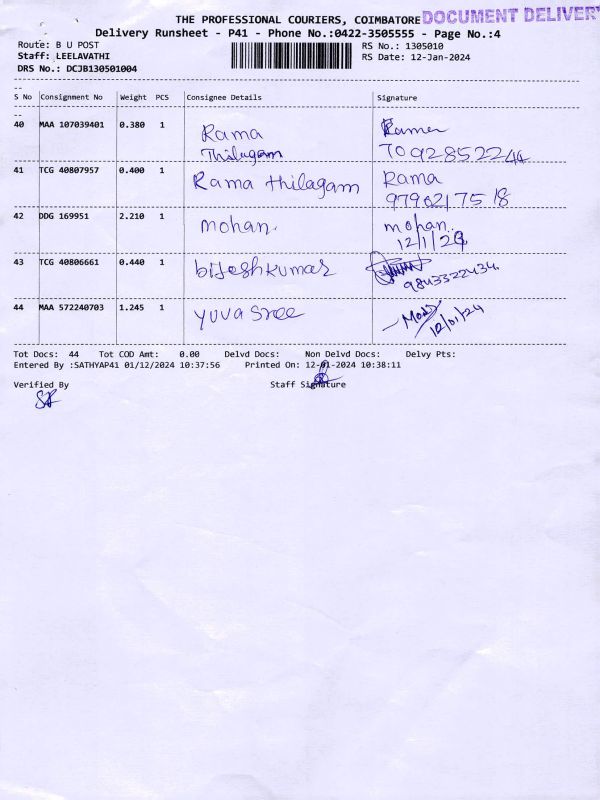 THE PROFESSIONAL COURIERS, COIMBATORE DOCUMENT DELIVERY
Delivery Runsheet - P41 - Phone No.:0422-3505555 - Page No.:4
Route: B U POST
RS No.: 1305010
Staff: LEELAVATHI
RS Date: 12-Jan-2024
DRS No.: DCJB130501004
S No Consignment No Weight PCS Consignee Details Signature
40 MAA 107039401 0.380 1 Rama
Thilagam
7092852244
41 TCG 40807957 0.400 1 Rama thilagam Rama
9790217518
42 DDG 169951 2.210 1 mohan. mohan.
12/1/24
43 TCG 40806661 0.440 1 bijeshkumar
9843322434
44 MAA 572240703 1.245 1 yuva sree
12/01/24
Tot Docs: 44 Tot COD Amt: 0.00 Delvd Docs: Non Delvd Docs: Delvy Pts:
Entered By :SATHYAP41 01/12/2024 10:37:56 Printed On: 12-01-2024 10:38:11
Verified By Staff Signature